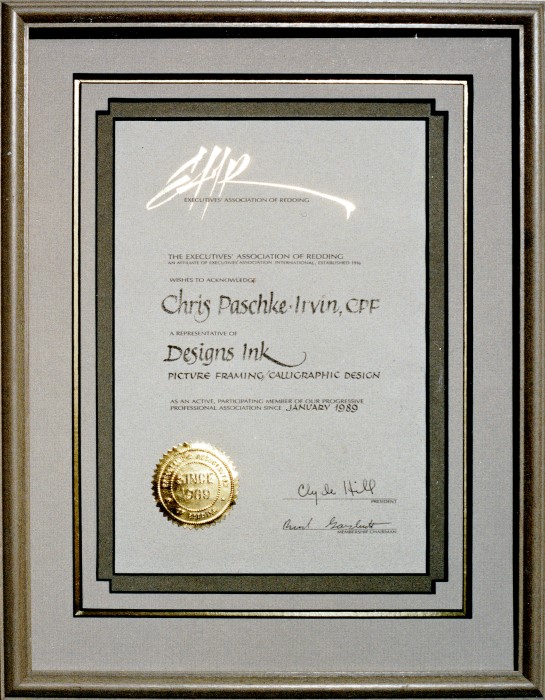 EAR
EXECUTIVES' ASSOCIATION OF REDDING
THE EXECUTIVES' ASSOCIATION OF REDDING
AN AFFILIATE OF EXECUTIVES ASSOCIATION INTERNATIONAL, ESTABLISHED 1916
WISHES TO ACKNOWLEDGE
Chris Paschke-Irvin, CPF
A REPRESENTATIVE OF
Designs Ink
PICTURE FRAMING/CALLIGRAPHIC DESIGN
AS AN ACTIVE, PARTICIPATING MEMBER OF OUR PROGRESSIVE
PROFESSIONAL ASSOCIATION SINCE JANUARY 1989
SINCE
Clyde Hill
PRESIDENT
MEMBERSHIP CHAIRMAN